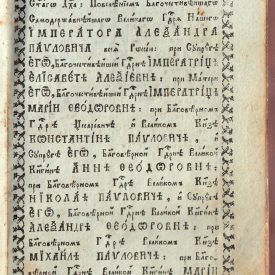 Стагѡ Дха: Повелѣнїемъ Благочестивѣйшагѡ
Самодержавнѣйшагѡ Великагѡ Гдря Нашегѡ
ІМПЕРАТОРА АЛЕѮАНДРА
ПАѴЛОВИЧА всеѧ Рѡссїи: при Сꙋпрꙋгѣ
ЕГѠ, Благочестивѣйшей Гдрнѣ ІМПЕРАТРИЦѢ
ЕЛІСАВЕТѢ АЛЕѮІЕВНѢ: при Матери
ЕГѠ, Благочестивѣйшей Гдрнѣ ІМПЕРАТРИЦѢ
МАРІИ ѲЕОДѠРОВНѢ: при Благовѣрномъ
Гдрѣ Цесаревичѣ и Великомъ Кнзѣ
КОНСТАНТІНѢ ПАѴЛОВИЧѢ, и
Сꙋпрꙋгѣ ЕГѠ, Благовѣрной Гдрнѣ Великой
Кнгинѣ АННѢ ѲЕОДѠРОВНѢ: при
Благовѣрномъ Гдрѣ Великомъ Кнзѣ
НІКОЛАѢ ПАѴЛОВИЧѢ, и Сꙋпрꙋгѣ
ЕГѠ, Благовѣрной Гдрнѣ Великой Кнгинѣ
АЛЕѮАНДРѢ ѲЕОДѠРОВНѢ: при
Благовѣрномъ Гдрѣ Великомъ Кнзѣ
МІХАИЛѢ ПАѴЛОВИЧѢ: при Благо-
вѣрной Гдрнѣ Великой Кнгинѣ МАРІИ